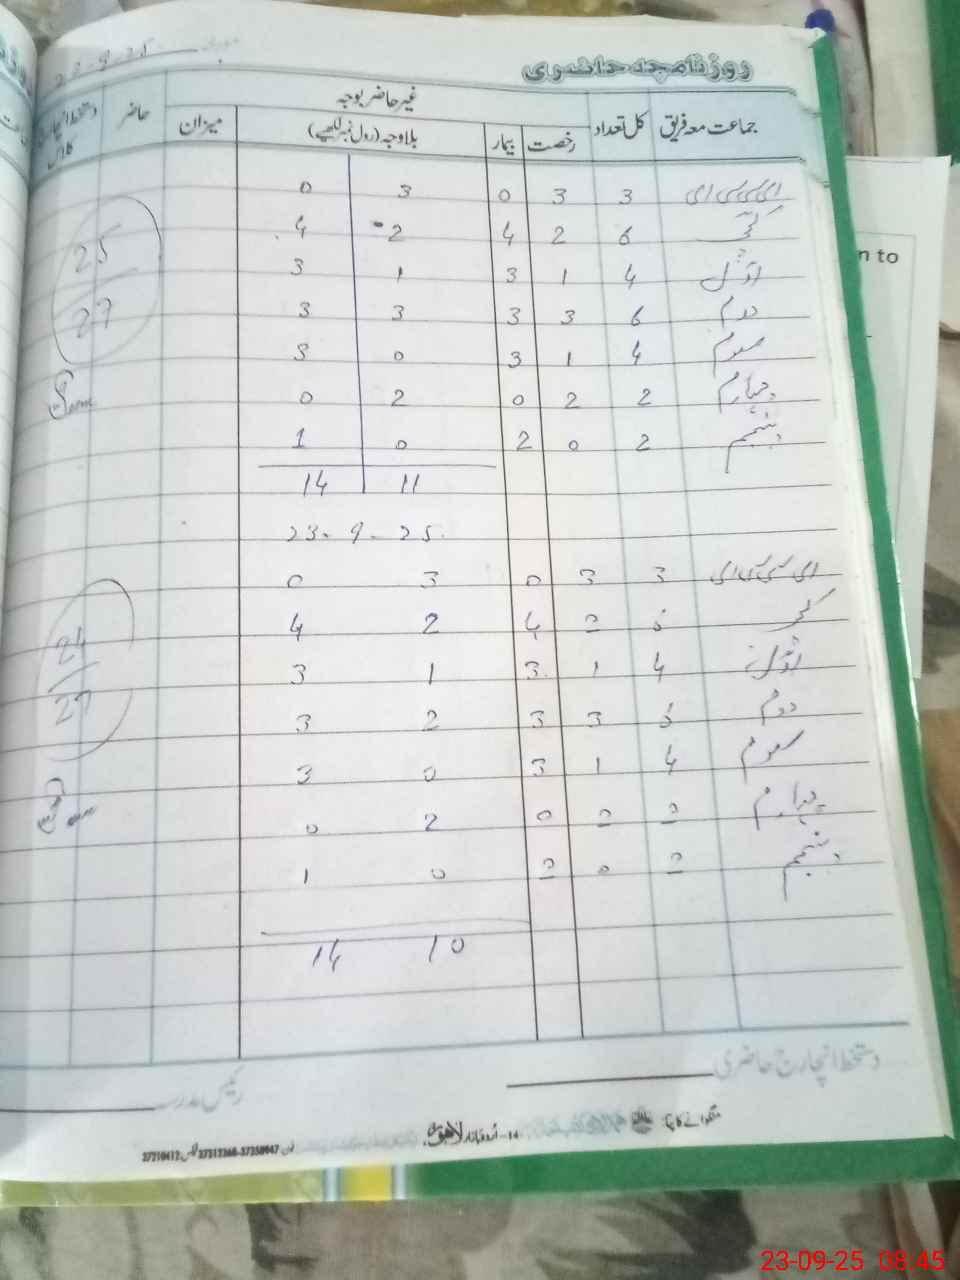 روزنامچہ حاضری
22-9-25
جماعت معہ فریق کل تعداد غیر حاضر بوجہ میزان حاضر دستخط انچارج کلاس
رخصت بیمار بلاوجہ (رول نمبر لکھیے)
ای سی سی ای 3 3 0 3 0
کچی 6 2 4 2 4
اوّل 4 1 3 1 3
دوم 6 3 3 3 3
سوم 4 1 3 0 3
چہارم 2 2 0 2 0
پنجم 2 0 2 0 1
11 14
25
27
23-9-25
ای سی سی ای 3 3 0 3 0
کچی 6 2 4 2 4
اوّل 4 1 3 1 3
دوم 6 3 3 2 3
سوم 4 1 3 0 3
چہارم 2 2 0 2 0
پنجم 2 0 2 0 1
10 14
24
27
دستخط انچارج حاضری
رئیس مدرسہ
14- اُردو بازار لاہور
n to
23-09-25 08:45